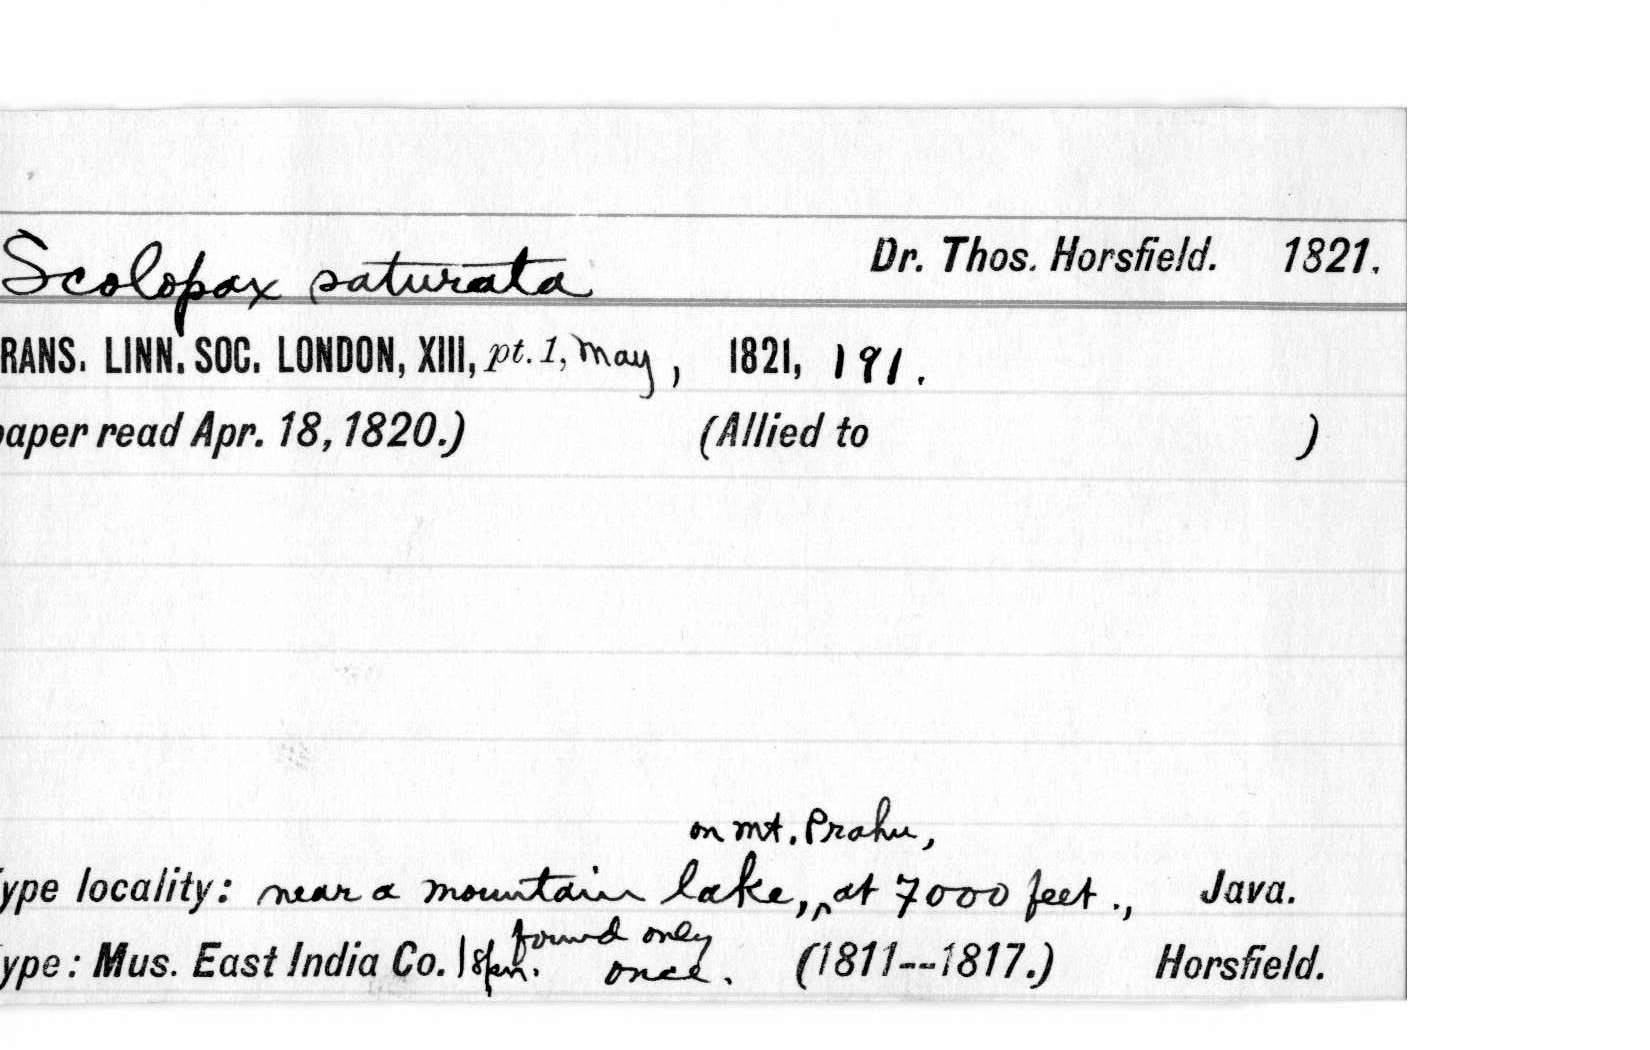 Scolopax saturata Dr. Thos. Horsfield. 1821.
RANS. LINN. SOC. LONDON, XIII, pt. 1, May, 1821, 191.
paper read Apr. 18, 1820.) (Allied to )
on mt. Prahu,
ype locality: near a mountain lake, ‸ at 7000 feet ., Java.
found only
ype: Mus. East India Co. 1 spm. once. (1811--1817.) Horsfield.